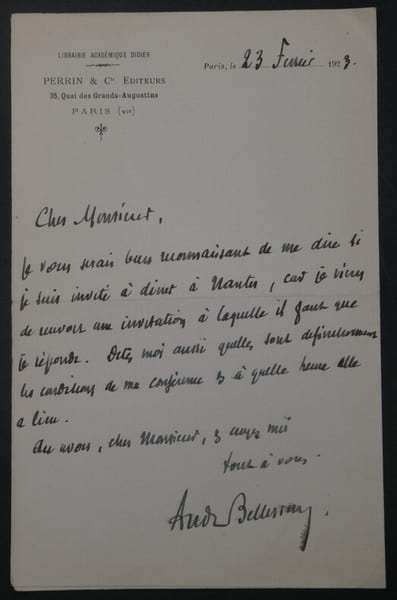 LIBRAIRIE ACADÉMIQUE DIDIER
PERRIN & Cie EDITEURS
35, Quai des Grands-Augustins
PARIS (VIe)
Paris, le 23 Fevrier 1923.
Cher Monsieur,
Je vous serais bien reconnaissant de me dire si
je suis invité à diner à Nantes, car je viens
de recevoir une invitation à laquelle il faut que
je réponde. Dites moi aussi quelles sont définitivement
les conditions de ma conférence & à quelle heure elle
a lieu.
Au revoir, cher Monsieur, & croyez moi
tout à vous.
André Bellessort.